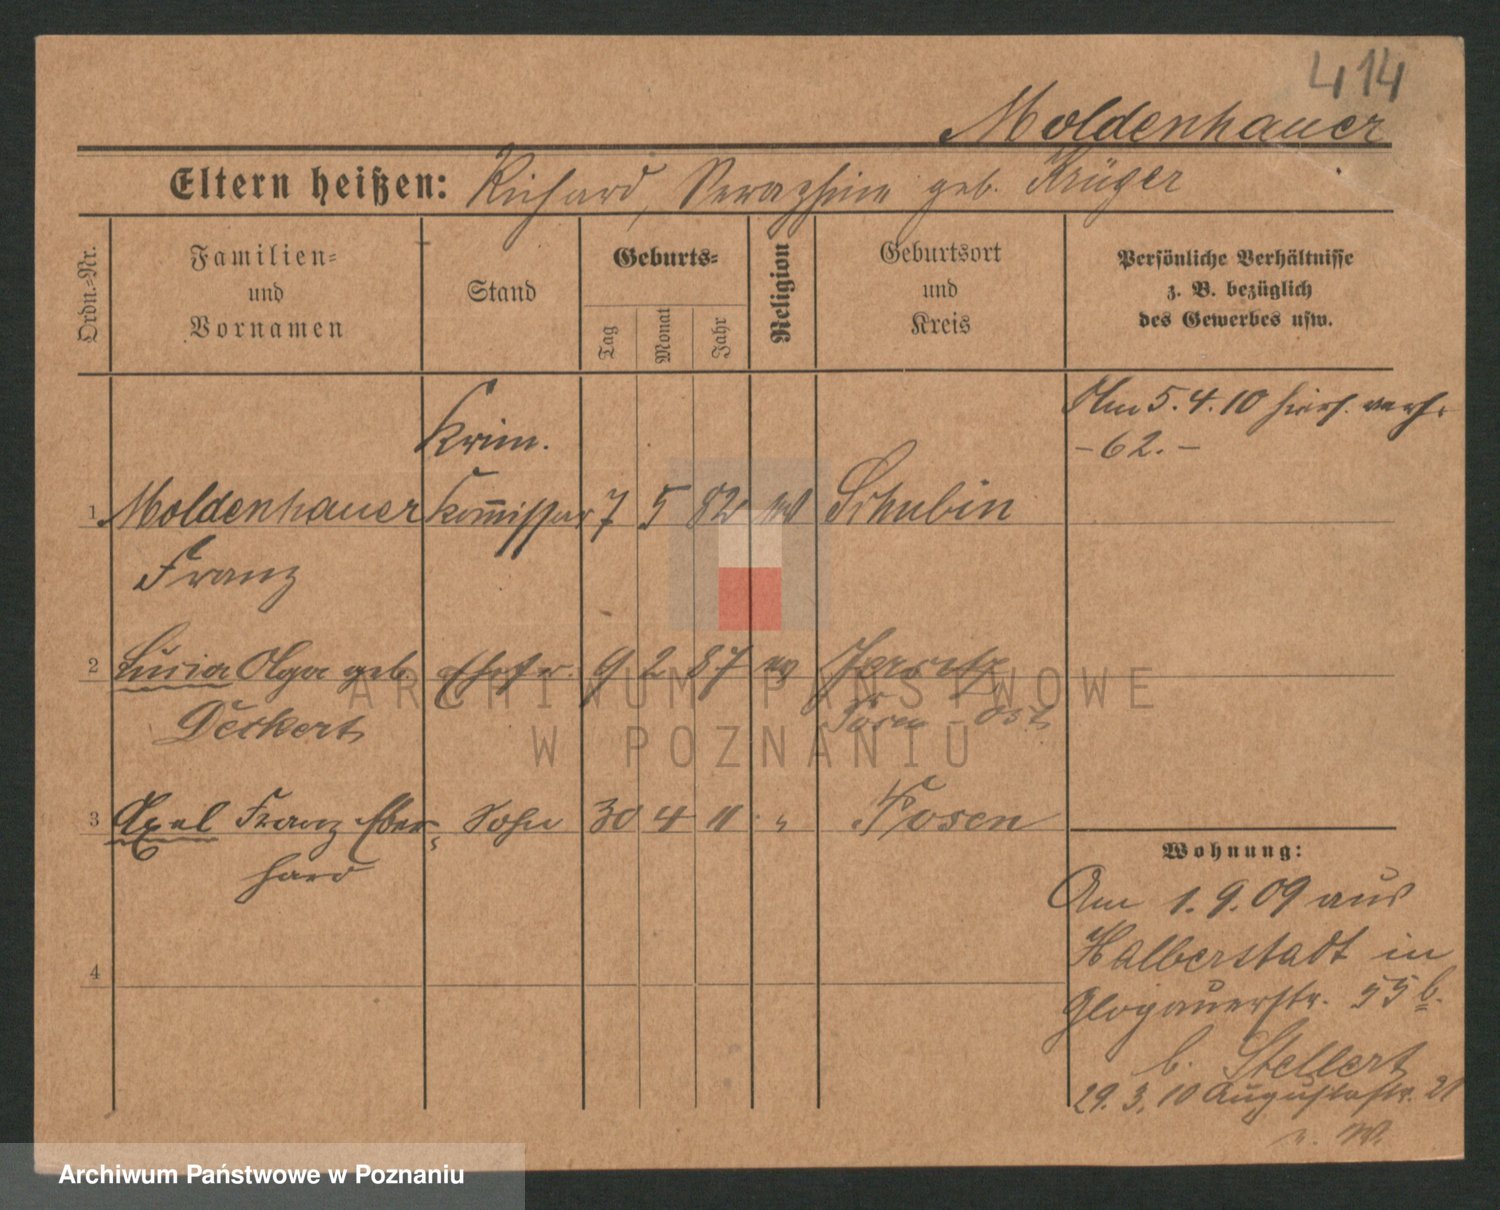 414
Moldenhauer
Eltern heißen: Richard, Seraphine geb. Krüger
Ordn.=Nr.
Familien=
und
Vornamen
Stand
Geburts=
Tag
Monat
Jahr
Religion
Geburtsort
und
Kreis
Persönliche Verhältnisse
z. B. bezüglich
des Gewerbes usw.
Am 5.4.10 hies. verh.
Krim. – 62. –
1 Moldenhauer Kommissar 7 5 82 ev Schubin
Franz
2 Lucia Olga geb Ehefr. 9 2 87 ev Jersitz
Deckert Posen - Ost
3 Axel Franz Eber= Sohn 30 4 11 " Posen
hard
4
Wohnung:
Am 1.9.09 aus
Halberstadt in
Glogauerstr. 55 b.
b. Stellert
29.3.10 Augustastr. 21
e. W.
ARCHIWUM PAŃSTWOWE
W POZNANIU
Archiwum Państwowe w Poznaniu